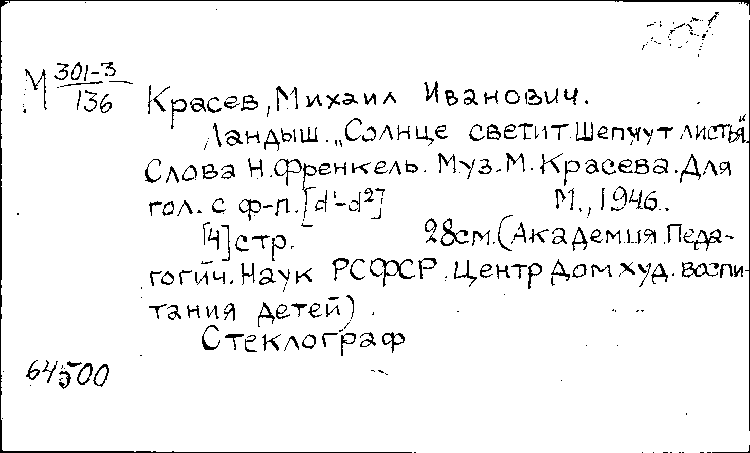 М 301-3/136
Красев, Михаил Иванович.
Ландыш. „Солнце светит. Шепчут листья".
Слова Н. Френкель. Муз. М. Красева. Для
гол. с ф-п. [d¹-d²] М., 1946.
[4] стр. 28см. (Академия Педа-
гогич. Наук РСФСР. Центр Дом худ. воспи-
тания детей).
Стеклограф
64500